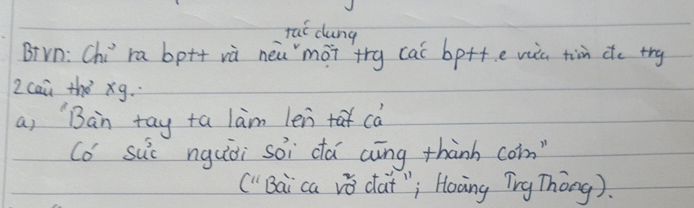 tác dụng
BTVN: Chỉ ra bptt và nêu ˅ một trg các bptt e vừa tìm đc trg
2 câu thơ xg:
a) "Bàn tay ta làm lên tất cả
Có sức người sỏi đá cũng thành cơm"
("Bài ca vỡ đất"; Hoàng Trg Thông).